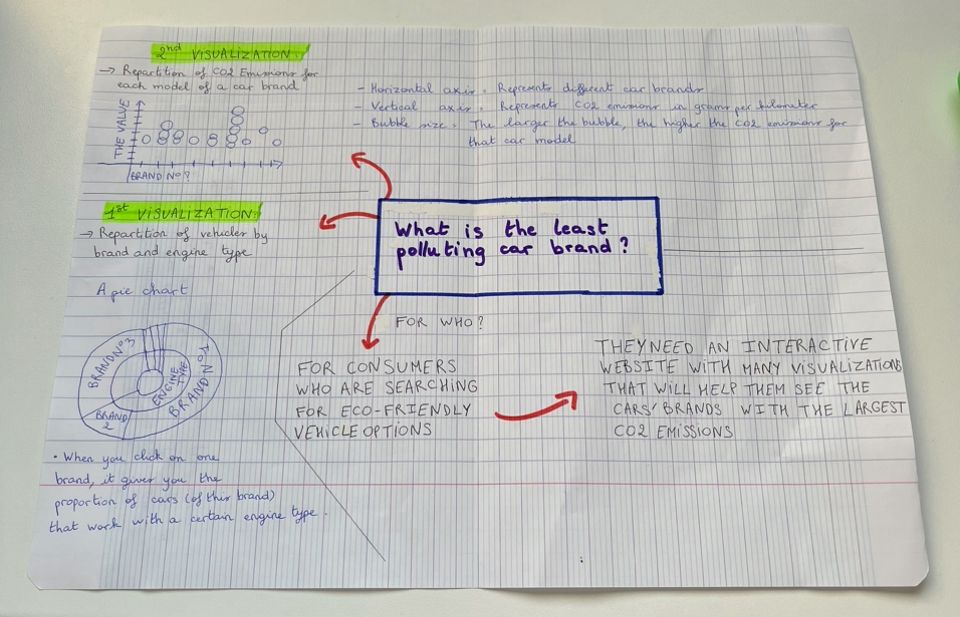 2nd VISUALIZATION:
→ Repartition of CO2 Emissions for
each model of a car brand
THE VALUE
BRAND N°?
- Horizontal axis: Represents different car brands
- Vertical axis: Represents CO2 emissions in grams per kilometer
- Bubble size: The larger the bubble, the higher the CO2 emissions for
that car model
1st VISUALIZATION:
→ Repartition of vehicles by
brand and engine type
A pie chart
BRAND N°3
BRAND N°1
BRAND
2
ENGINE
TYPE
• When you click on one
brand, it gives you the
proportion of cars (of this brand)
that work with a certain engine type.
What is the least
polluting car brand?
FOR WHO?
FOR CONSUMERS
WHO ARE SEARCHING
FOR ECO-FRIENDLY
VEHICLE OPTIONS
THEY NEED AN INTERACTIVE
WEBSITE WITH MANY VISUALIZATIONS
THAT WILL HELP THEM SEE THE
CARS' BRANDS WITH THE LARGEST
CO2 EMISSIONS